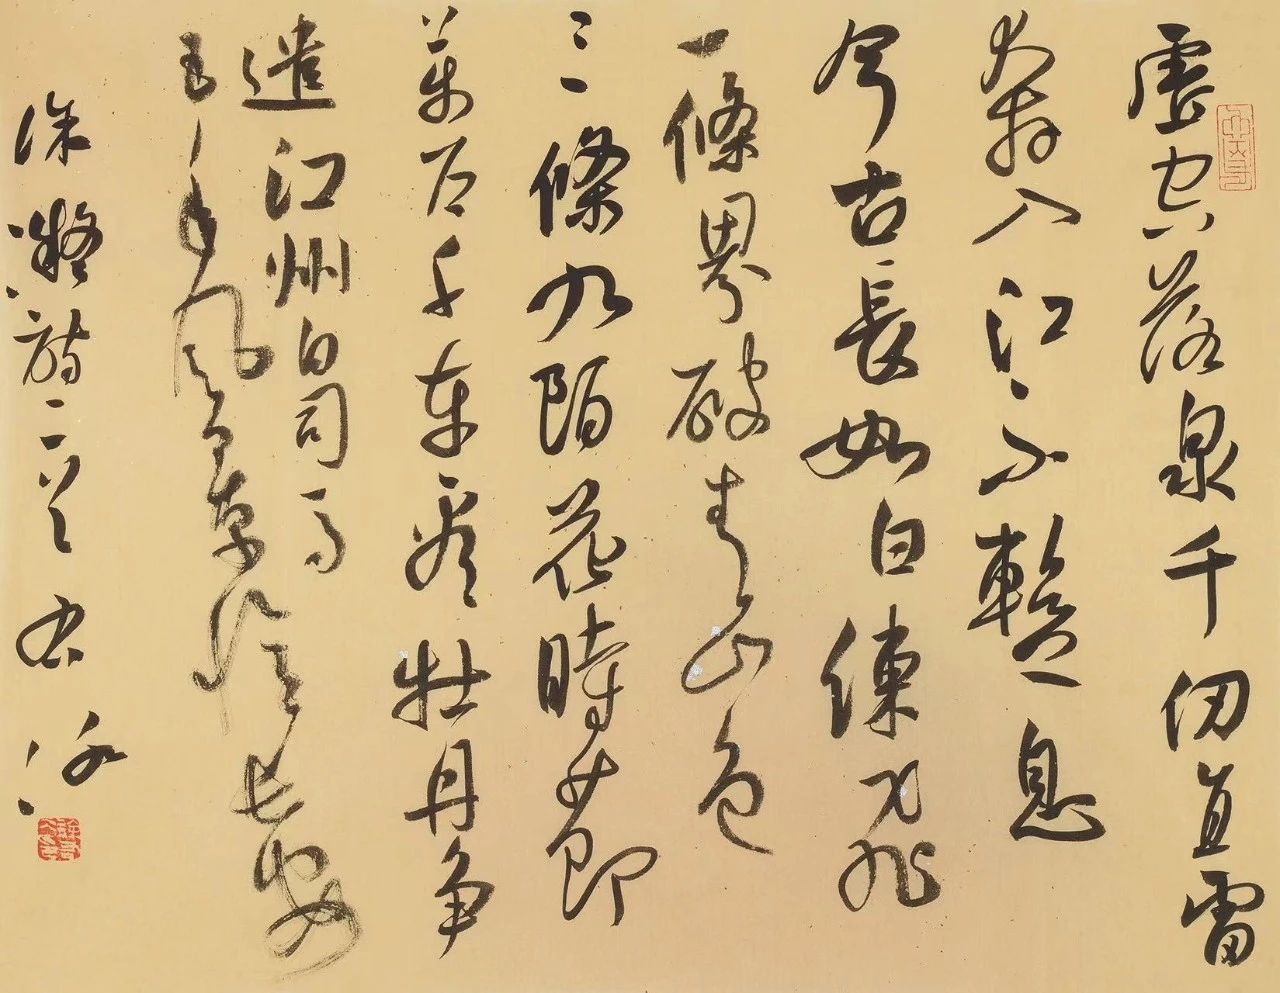 虛空落泉千仞直雷
奔入江不暫息
今古長如白練飛
一條界破青山色
三條九陌花時節
萬户千車看牡丹争
遣江州白司馬
五年風景憶長安
徐凝詩二首